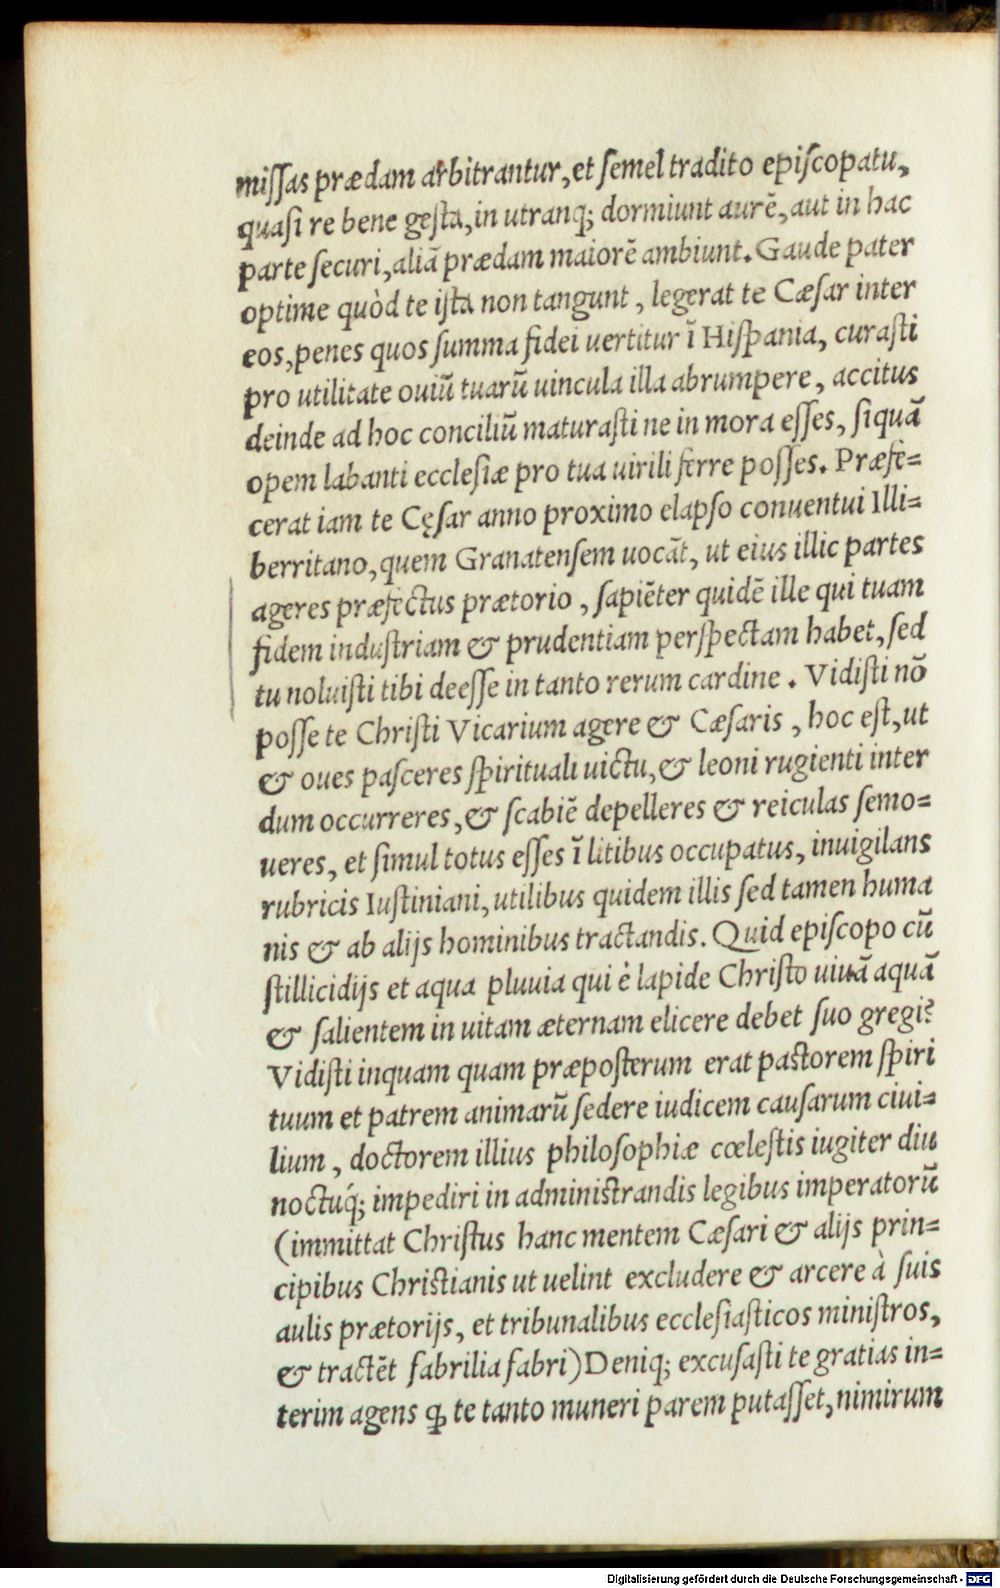 miſſas prædam arbitrantur, et ſemel tradito epiſcopatu,
quaſi re bene geſta, in utranq; dormiunt aurē, aut in hac
parte ſecuri, aliā prædam maiorē ambiunt. Gaude pater
optime quòd te iſta non tangunt, legerat te Cæſar inter
eos, penes quos ſumma fidei uertitur ī Hiſpania, curaſti
pro utilitate ouiū tuarū uincula illa abrumpere, accitus
deinde ad hoc conciliū maturaſti ne in mora eſſes, ſi quā
opem labanti eccleſiæ pro tua uirili ferre poſſes. Præfe=
cerat iam te Cęſar anno proximo elapſo conuentui Illi=
berritano, quem Granatenſem uocāt, ut eius illic partes
ageres præfectus prætorio, ſapiēter quidē ille qui tuam
fidem induſtriam & prudentiam perſpectam habet, ſed
tu noluiſti tibi deeſſe in tanto rerum cardine. Vidiſti nō
poſſe te Chriſti Vicarium agere & Cæſaris, hoc eſt, ut
& oues paſceres ſpirituali uictu, & leoni rugienti inter
dum occurreres, & ſcabiē depelleres & reiculas ſemo=
ueres, et ſimul totus eſſes ī litibus occupatus, inuigilans
rubricis Iuſtiniani, utilibus quidem illis ſed tamen huma
nis & ab alijs hominibus tractandis. Quid epiſcopo cū
ſtillicidijs et aqua pluuia qui è lapide Chriſto uiuā aquā
& ſalientem in uitam æternam elicere debet ſuo gregi?
Vidiſti inquam quam præpoſterum erat paſtorem ſpiri
tuum et patrem animarū ſedere iudicem cauſarum ciui=
lium, doctorem illius philoſophiæ cœleſtis iugiter diu
noctuq́; impediri in adminiſtrandis legibus imperatorū
(immittat Chriſtus hanc mentem Cæſari & alijs prin=
cipibus Chriſtianis ut uelint excludere & arcere à ſuis
aulis prætorijs, et tribunalibus eccleſiaſticos miniſtros,
& tractēt fabrilia fabri) Deniq; excuſaſti te gratias in=
terim agens ꝙ te tanto muneri parem putaſſet, nimirum
Digitalisierung gefördert durch die Deutsche Forschungsgemeinschaft - DFG